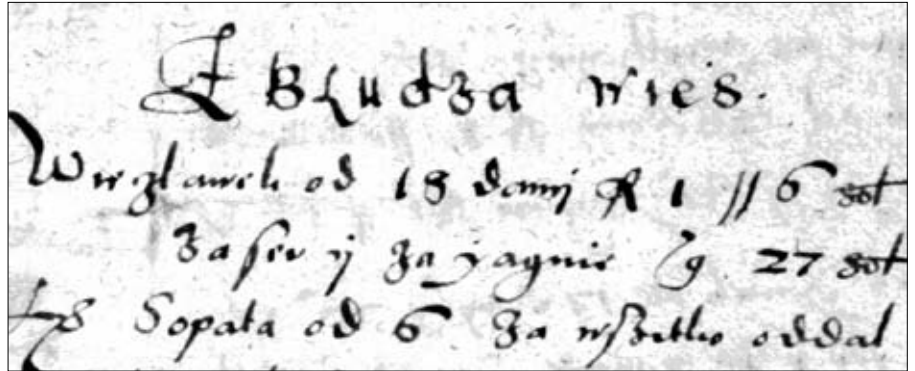 Zbludza wies.
Wirzlawek od 18 dany fl 1 // 6 sol
za ser ij za yagnie 27 sol
Sopata od 6 za wszitko oddal